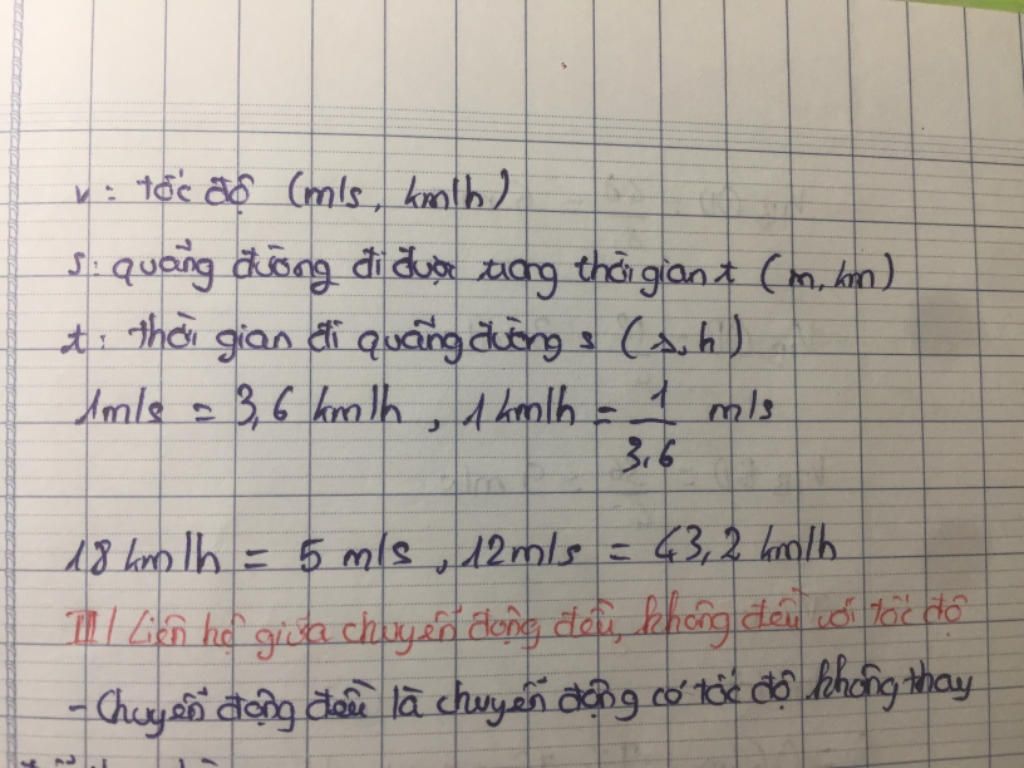 v: tốc độ (m/s, km/h)
s: quãng đường đi được trong thời gian t (m, km)
t: thời gian đi quãng đường s (s, h)
1m/s = 3,6 km/h, 1 km/h = 1/3,6 m/s
18 km/h = 5 m/s, 12m/s = 43,2 km/h
III/ Liên hệ giữa chuyển động đều, không đều với tốc độ
- Chuyển động đều là chuyển động có tốc độ không thay